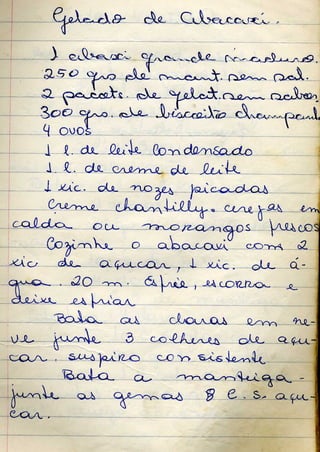 Gelado de Abacaxi.
1 abaxi grande maduro.
250 grs de mant. sem sal.
2 pacots. de gelat. sem sabor.
300 grs. de biscoito champanh
4 ovos
1 l. de leite Condensado
1 l. de creme de leite
1 xic. de nozes picadas
Creme chantilly. cerejas em
calda ou morangos frescos
Cozinhe o abacaxi com 2
xic de açucar, 1 xic. de á-
gua. 20 m. Esfrie, escorra e
deixe esfriar
Bata as claras em ne-
ve junte 3 colheres de açu-
car. suspiro consistente
Bata a manteiga -
junte as gemas 8 c. s. açu-
car.